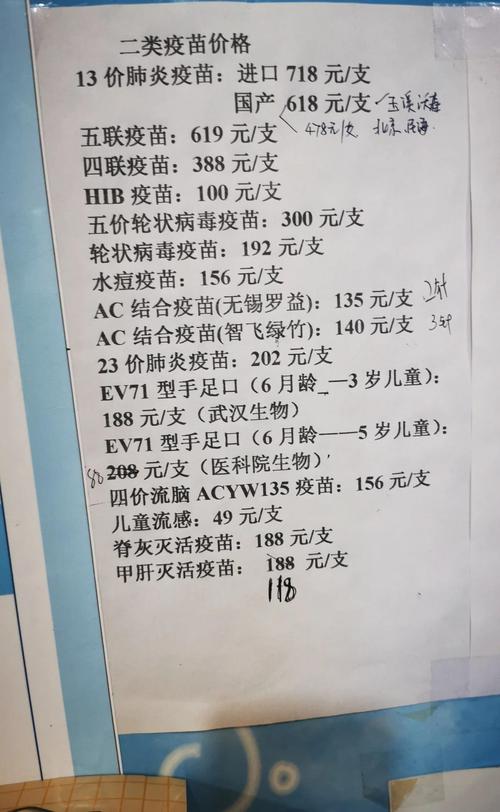 二类疫苗价格
13 价肺炎疫苗：进口 718 元/支
国产 618 元/支 玉溪沃森
五联疫苗：619 元/支 478元/支 北京民海
四联疫苗：388 元/支
HIB 疫苗：100 元/支
五价轮状病毒疫苗：300 元/支
轮状病毒疫苗：192 元/支
水痘疫苗：156 元/支
AC 结合疫苗(无锡罗益)：135 元/支 2针
AC 结合疫苗(智飞绿竹)：140 元/支 3针
23 价肺炎疫苗：202 元/支
EV71 型手足口（6 月龄_—3 岁儿童）：
188 元/支（武汉生物）
EV71 型手足口（6 月龄——5 岁儿童）：
208 元/支（医科院生物）
四价流脑 ACYW135 疫苗：156 元/支
儿童流感：49 元/支
脊灰灭活疫苗：188 元/支
甲肝灭活疫苗： 188 元/支
118